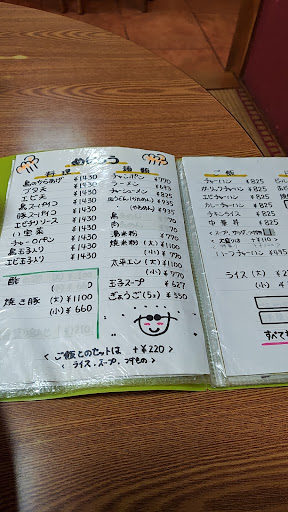 めにゅう
料理
鳥のからあげ ¥1430
ブタ天 ¥1430
エビ天 ¥1430
鳥スーパイコ ¥1430
豚スーパイコ ¥1430
エビチリソース ¥1430
八宝菜 ¥1430
チャーロパン ¥1430
鳥玉子入り ¥1430
エビ玉子入り ¥1430
酢
焼き豚 (大) ¥1100
(小) ¥660
麺類
チャンポン ¥770
ラーメン ¥693
チャーシューメン ¥935
¥935
(やわめん) ¥935
鳥 770
肉 770
湯麺 770
焼米粉 (大) ¥1100
(小) 770
太平エン (大) ¥1100
(小) 770
玉子スープ ¥627
ぎょうざ(5ヶ) ¥550
<ご飯とのセットは +¥220>
ライス・スープ・つけもの
ご飯
チャーハン ¥825
¥825
エビチャーハン ¥825
カレーチャーハン ¥825
チキンライス ¥825
中華丼 ¥825
ハーフチャーハン
ライス (大)
(小)
すべて